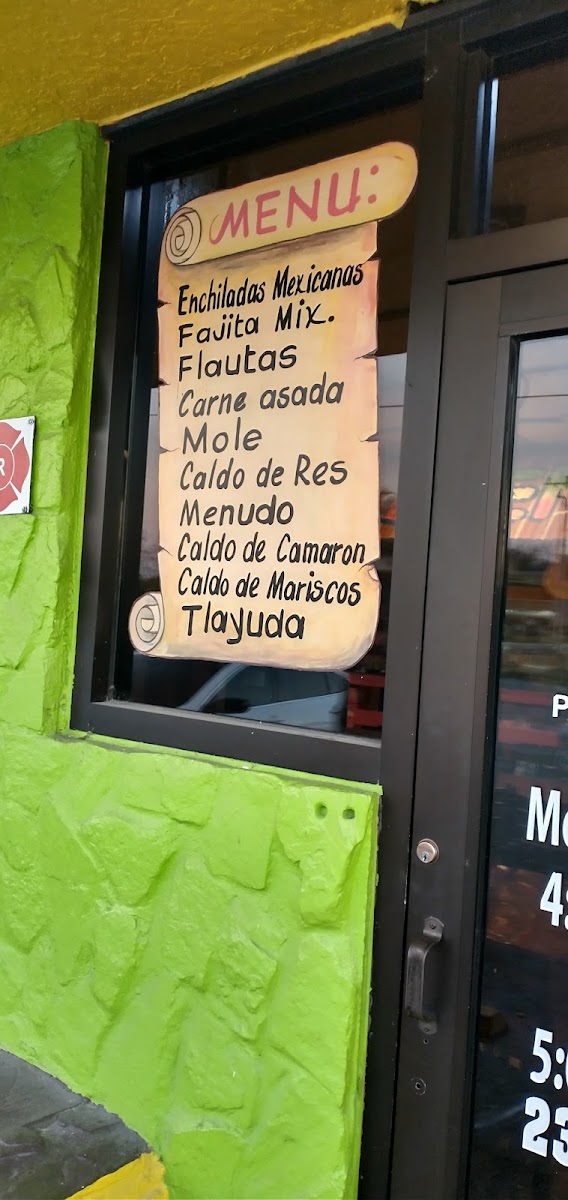 MENU:
Enchiladas Mexicanas
Fajita Mix.
Flautas
Carne asada
Mole
Caldo de Res
Menudo
Caldo de Camaron
Caldo de Mariscos
Tlayuda
R
P
23